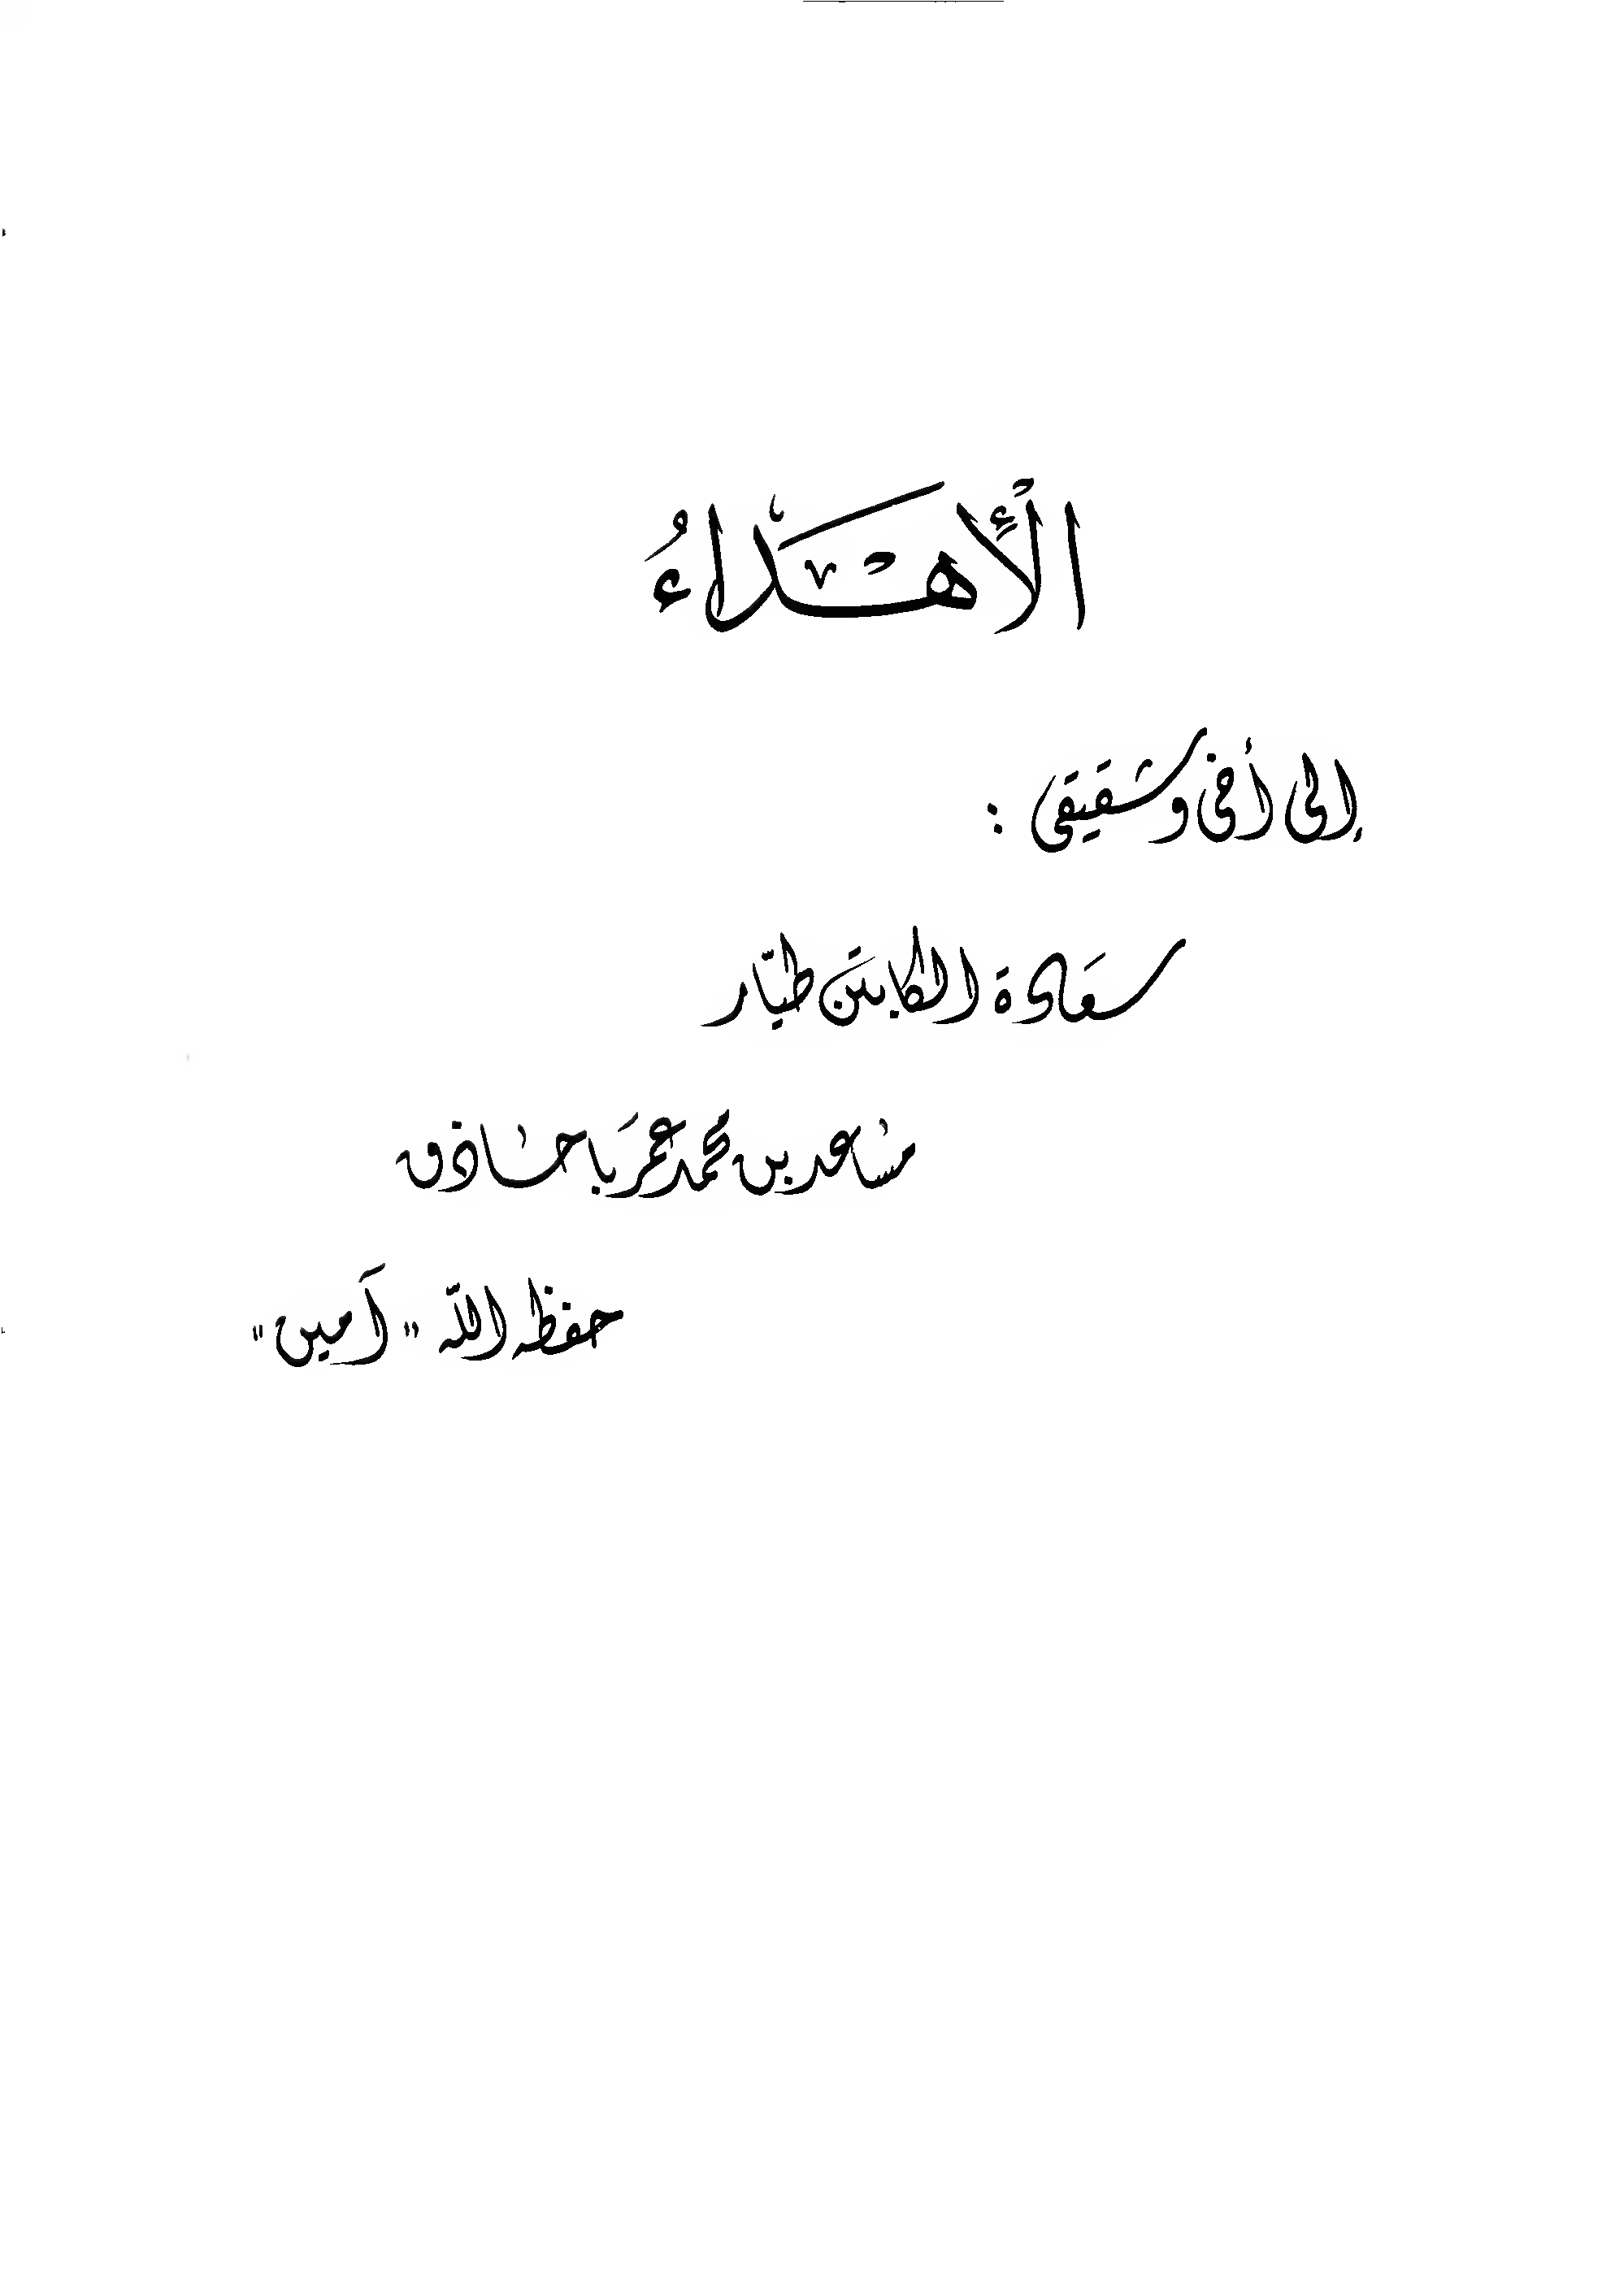 الأهداءُ
إلى أخى وشقيقى :
سعَادة الكابتن طيّار
مساعد بن محمد عمرَ باحاذق
حفظه اللّه "آمين"